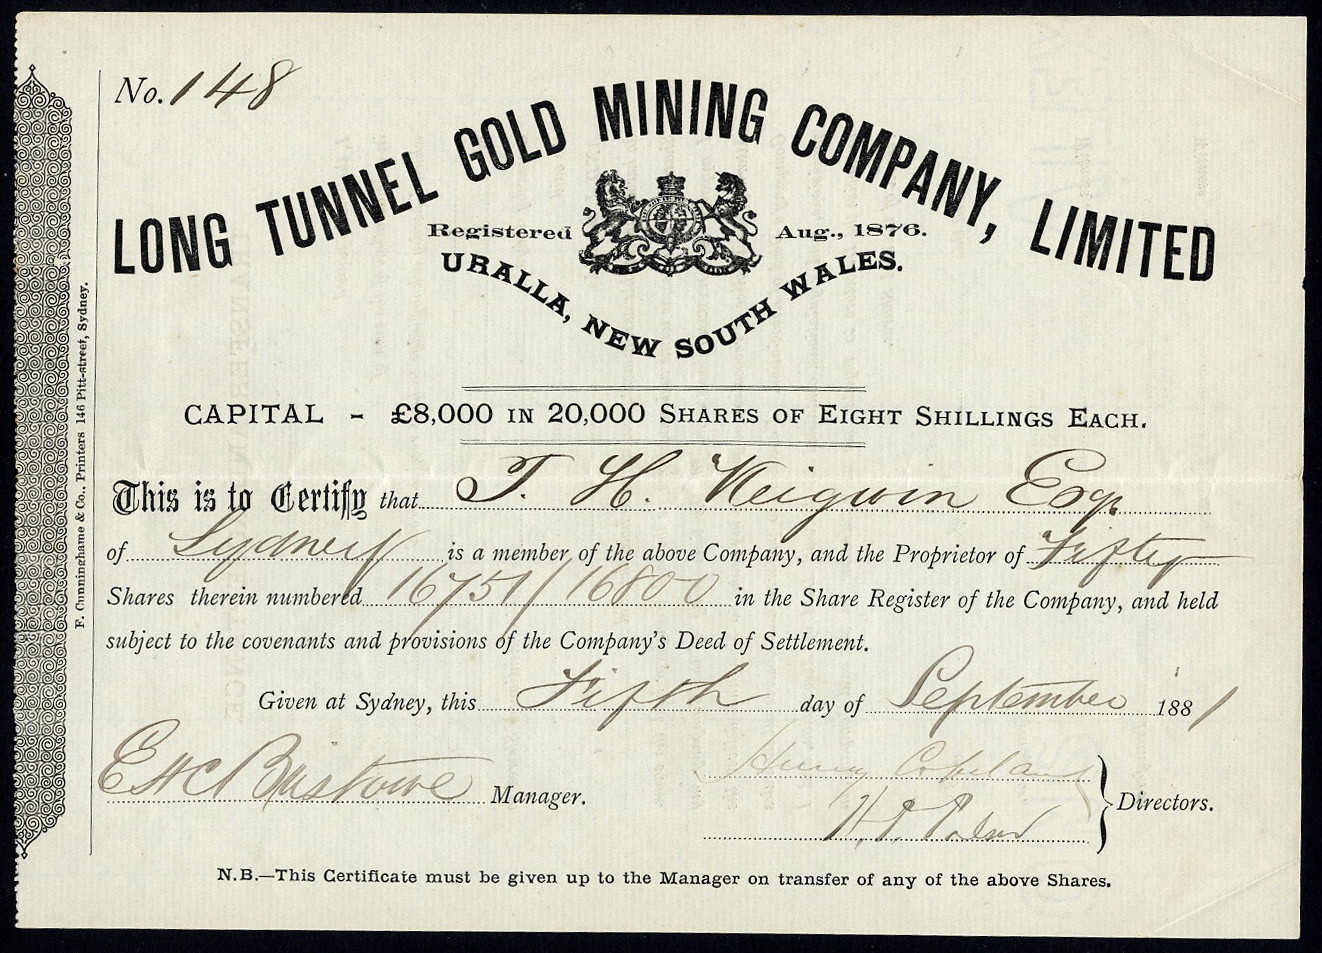 No. 148
LONG TUNNEL GOLD MINING COMPANY, LIMITED
Registered Aug., 1876.
URALLA, NEW SOUTH WALES.
CAPITAL - £8,000 IN 20,000 SHARES OF EIGHT SHILLINGS EACH.
This is to Certify that T. H. Keigwin Esq.
of Sydney is a member of the above Company, and the Proprietor of Fifty
Shares therein numbered 16751/16800 in the Share Register of the Company, and held
subject to the covenants and provisions of the Company's Deed of Settlement.
Given at Sydney, this Fifth day of September 1881
E H C Bristowe Manager.
Henry Copeland
H. Directors.
N.B.—This Certificate must be given up to the Manager on transfer of any of the above Shares.
F. Cunninghame & Co., Printers 146 Pitt-street, Sydney.